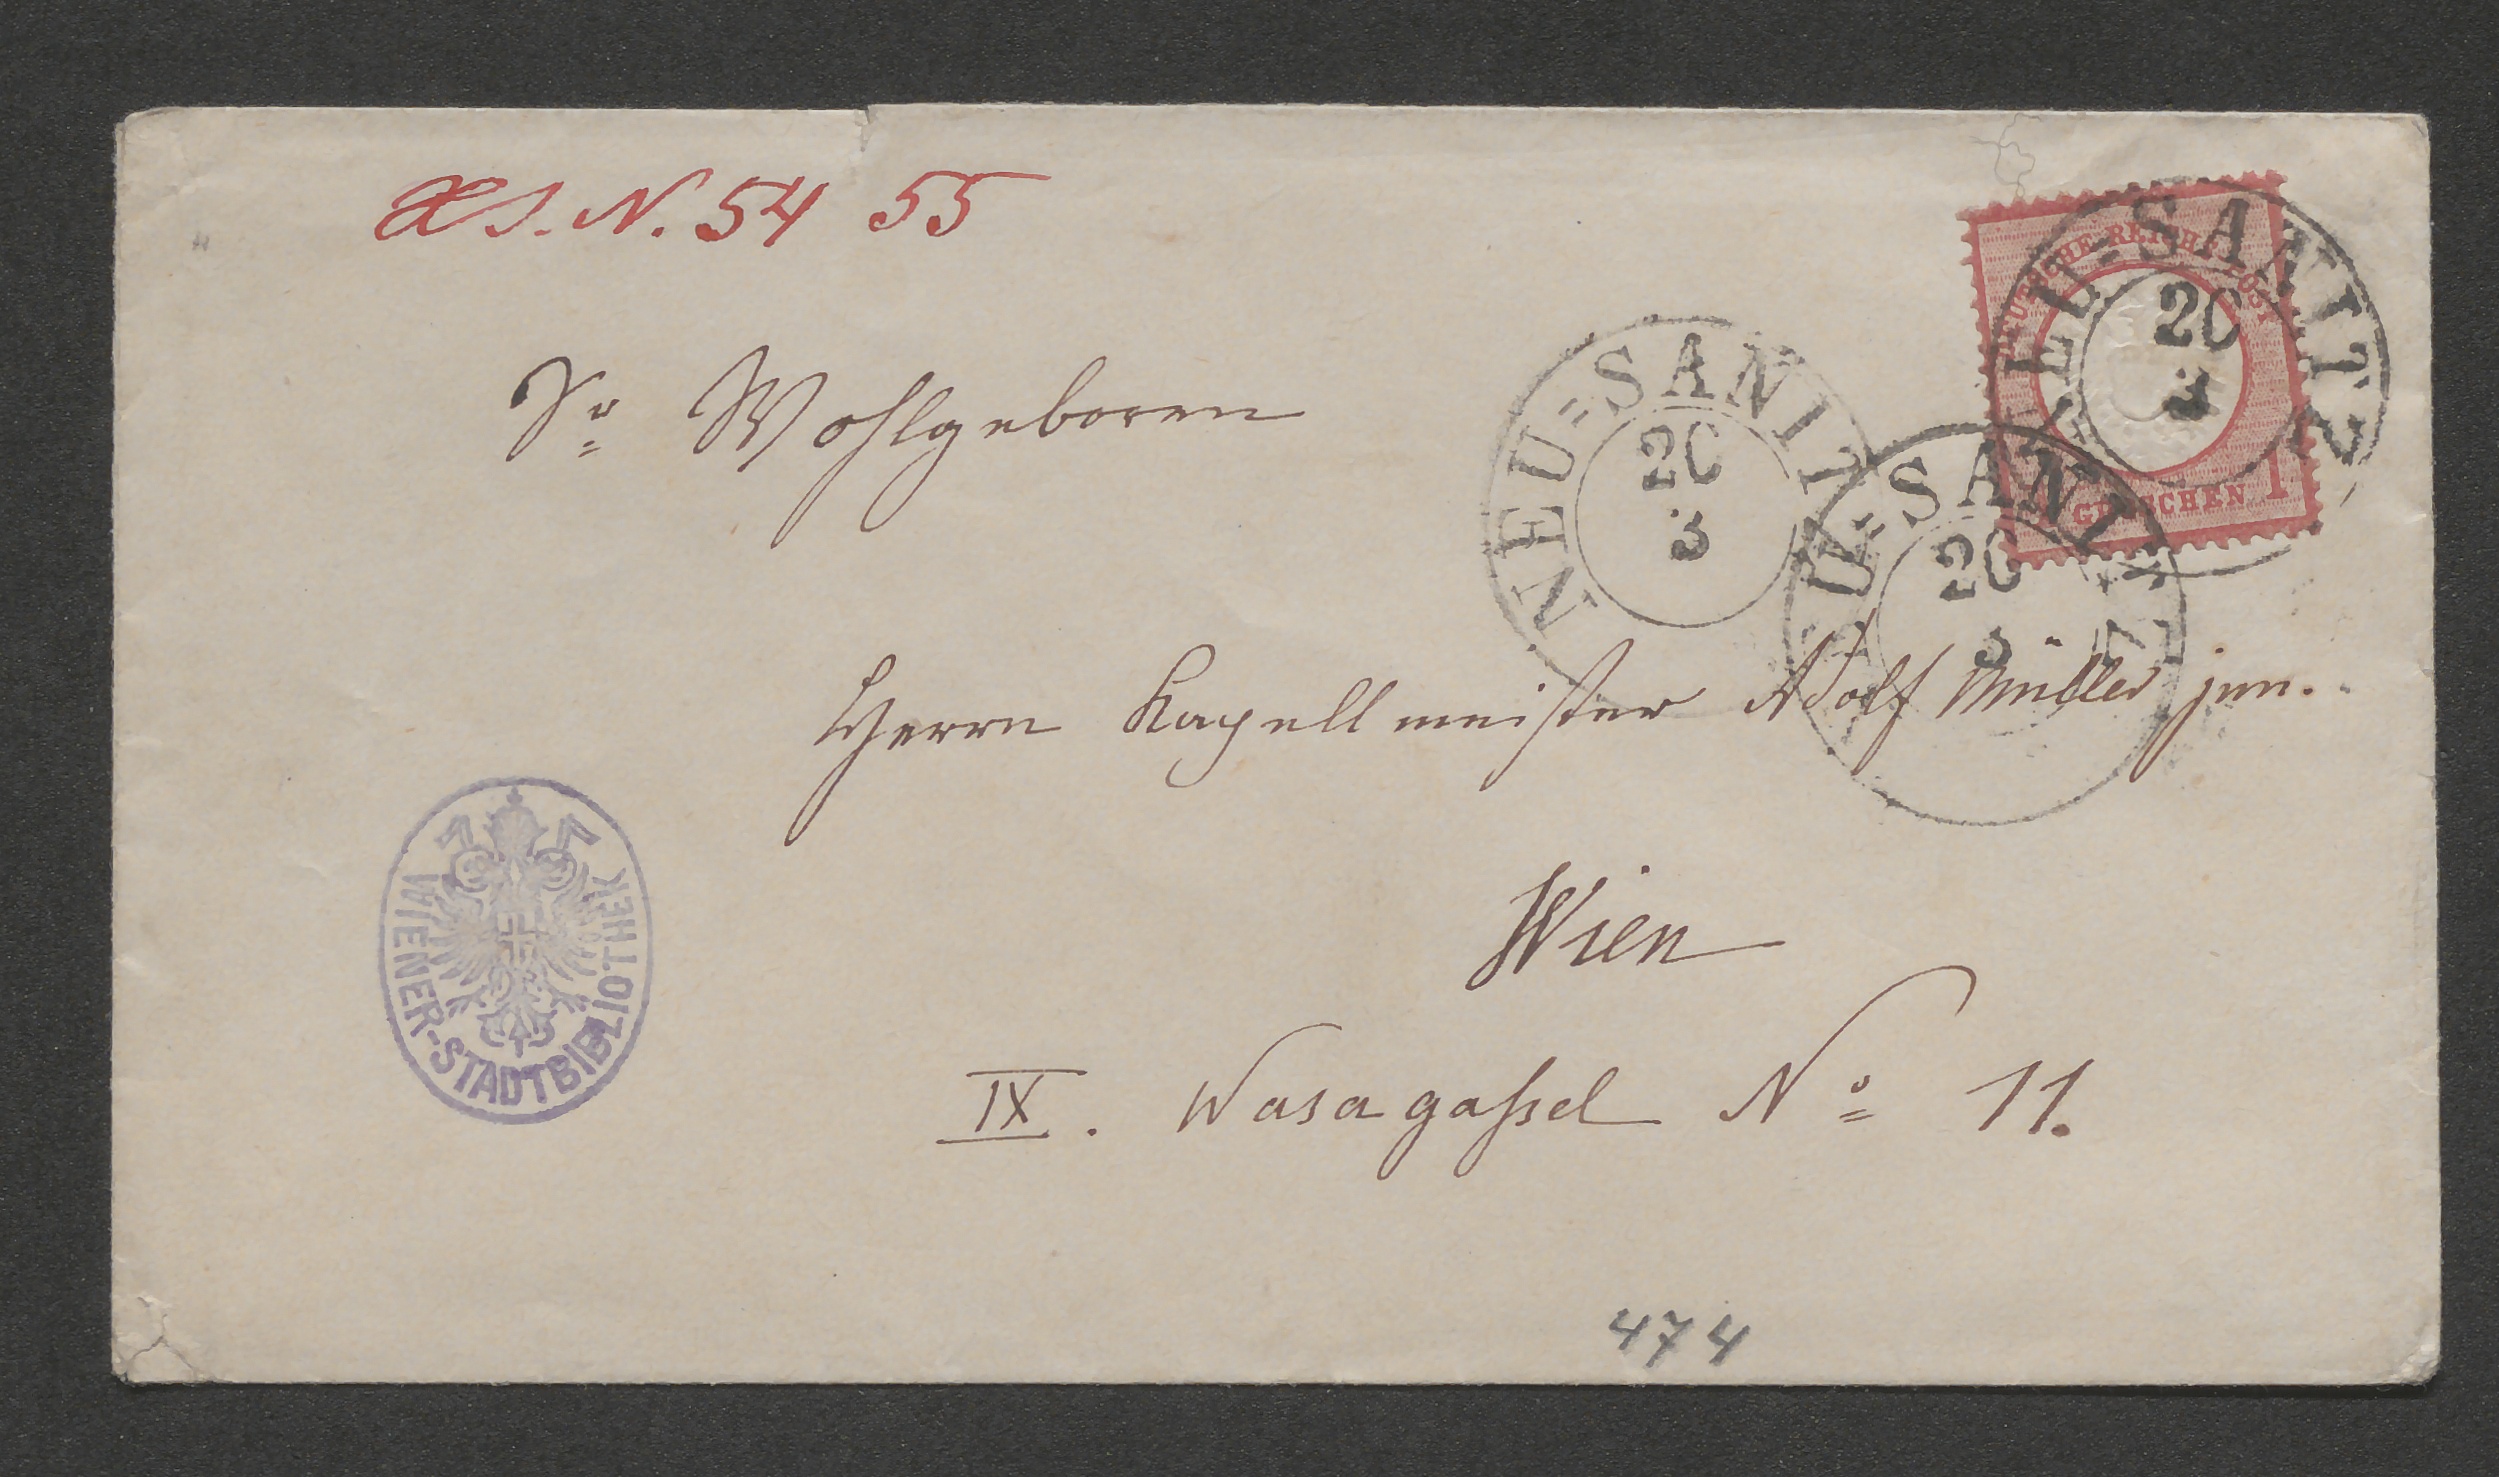 H.I.N. 54 55
DEUTSCHE REICHS-POST
1 GROSCHEN 1
NEU=SANITZ
20
3
NEU=SANITZ
20
3
NEU=SANITZ
20
3
Sr Wohlgeboren
Herrn Kapellmeister Adolf Müller jun.
Wien
IX. Wasagaßel No 11.
WIENER-STADTBIBLIOTHEK
474